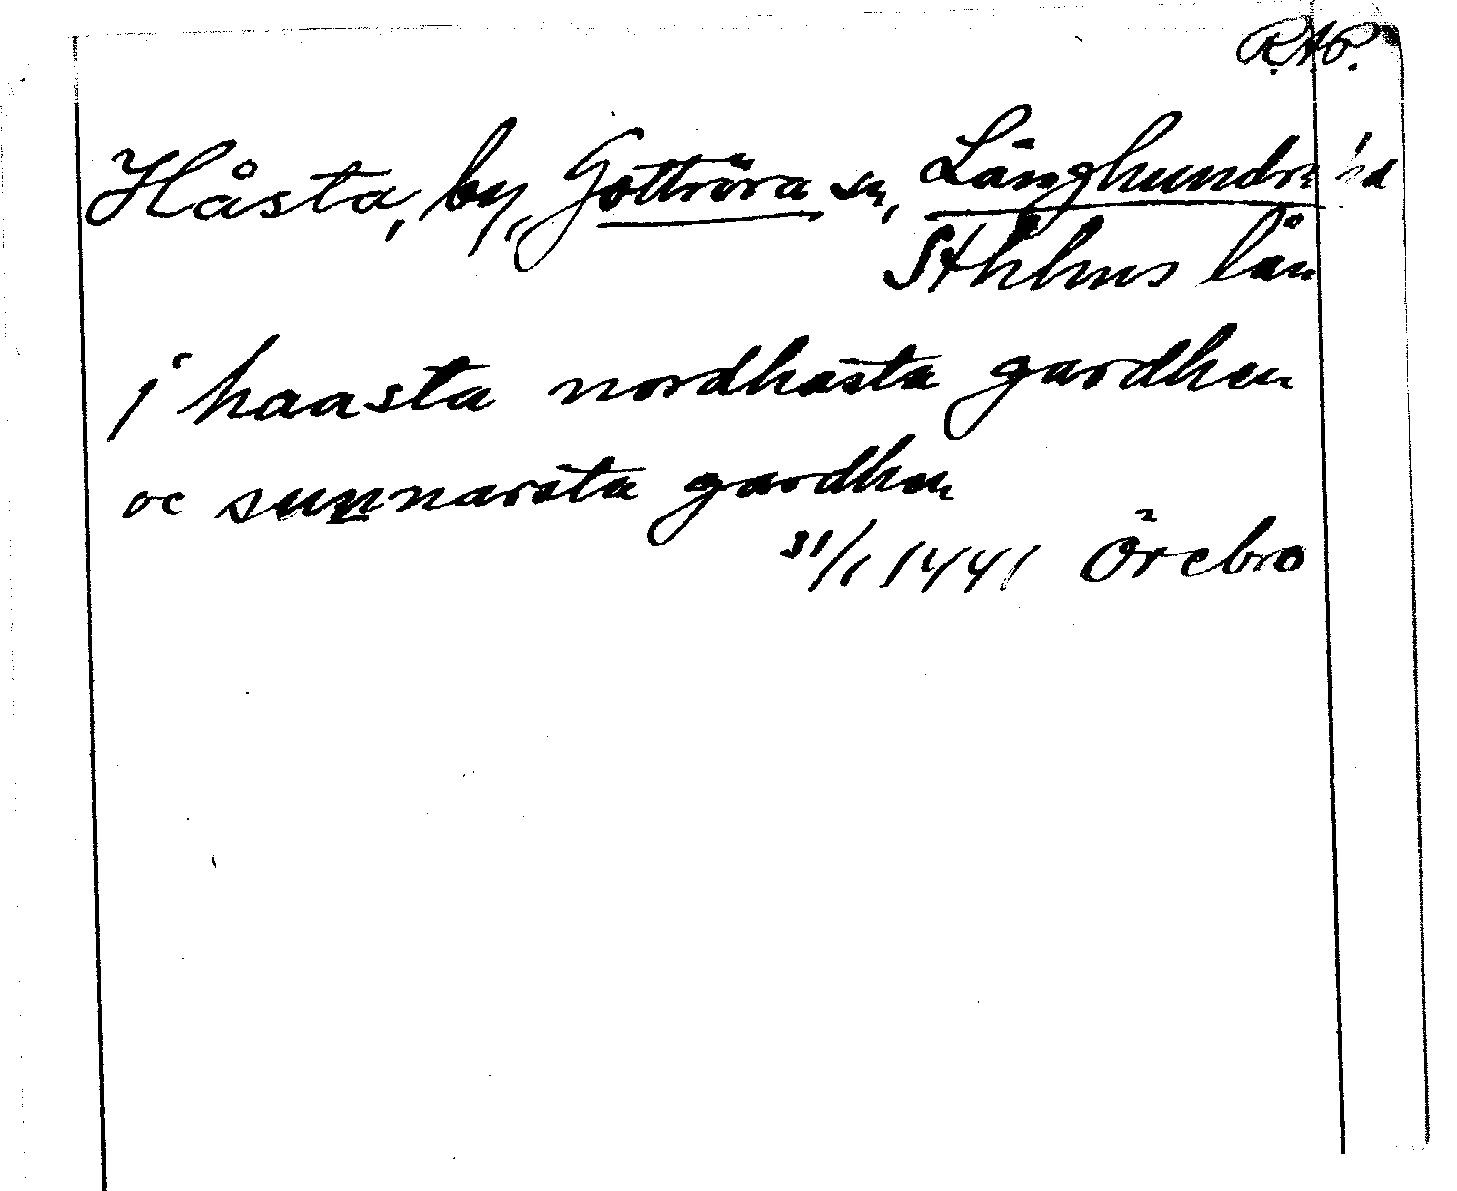 R.A.P.
Håsta, by, Gottröra sn, Långhundra hd
Sthlms län
j haasta nordhasta gardhen
oc sunnarsta gardhen
31/1 1441 Örebro